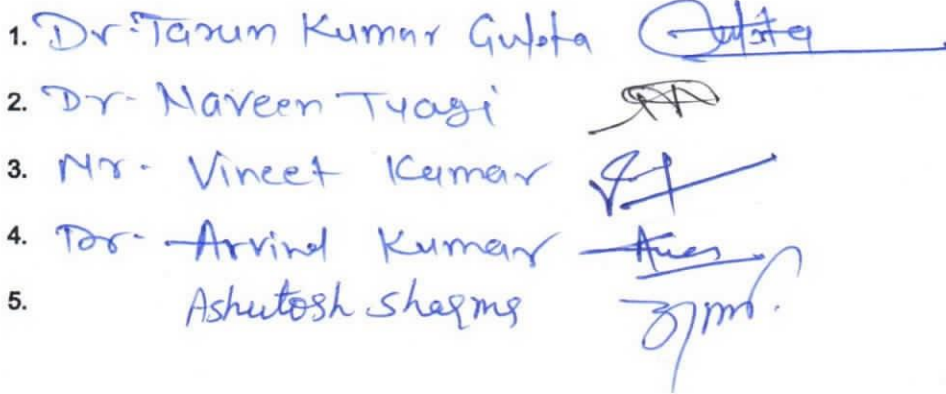 1. Dr. Tarun Kumar Gupta Gupta
2. Dr- Naveen Tyagi
3. Mr. Vineet Kumar
4. Dr- Arvind Kumar
5. Ashutosh Sharma